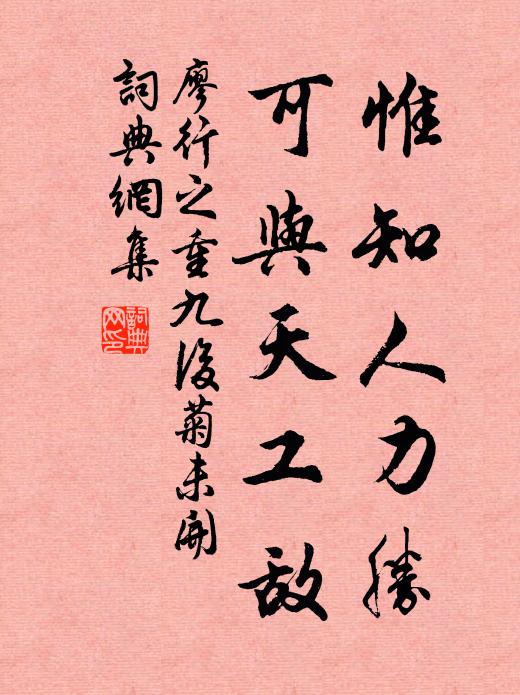 惟知人力勝
可與天工敵
廖行之重九後菊未開
詞典網集
詞典網印